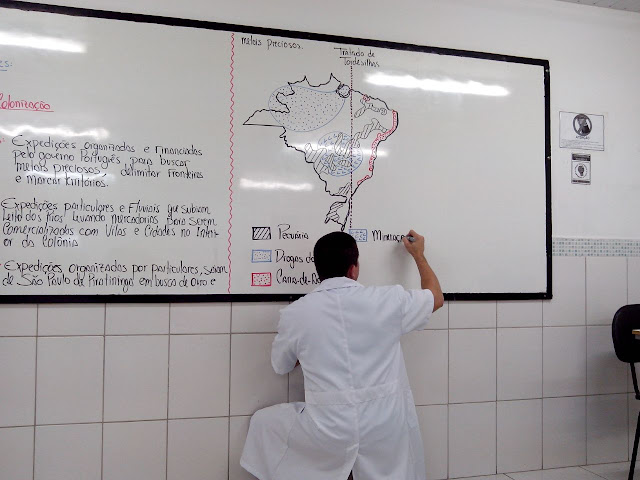 es:
metais preciosos.
Tratado de
Tordesilhas
olonização
Expedições organizadas e Financiadas
pelo governo Português para buscar
metais preciosos, delimitar fronteira
e marcar territórios.
Expedições particulares e Fluviais que subiam
leito dos Rios levando mercadorias para serem
Comercializadas com Vilas e Cidades no Inter
or da Colônia
Expedições organizadas por particulares, saiam
de São Paulo de Piratininga em busca de Ouro e
Pecuária
Drogas d
Cana-de-
Mineraç